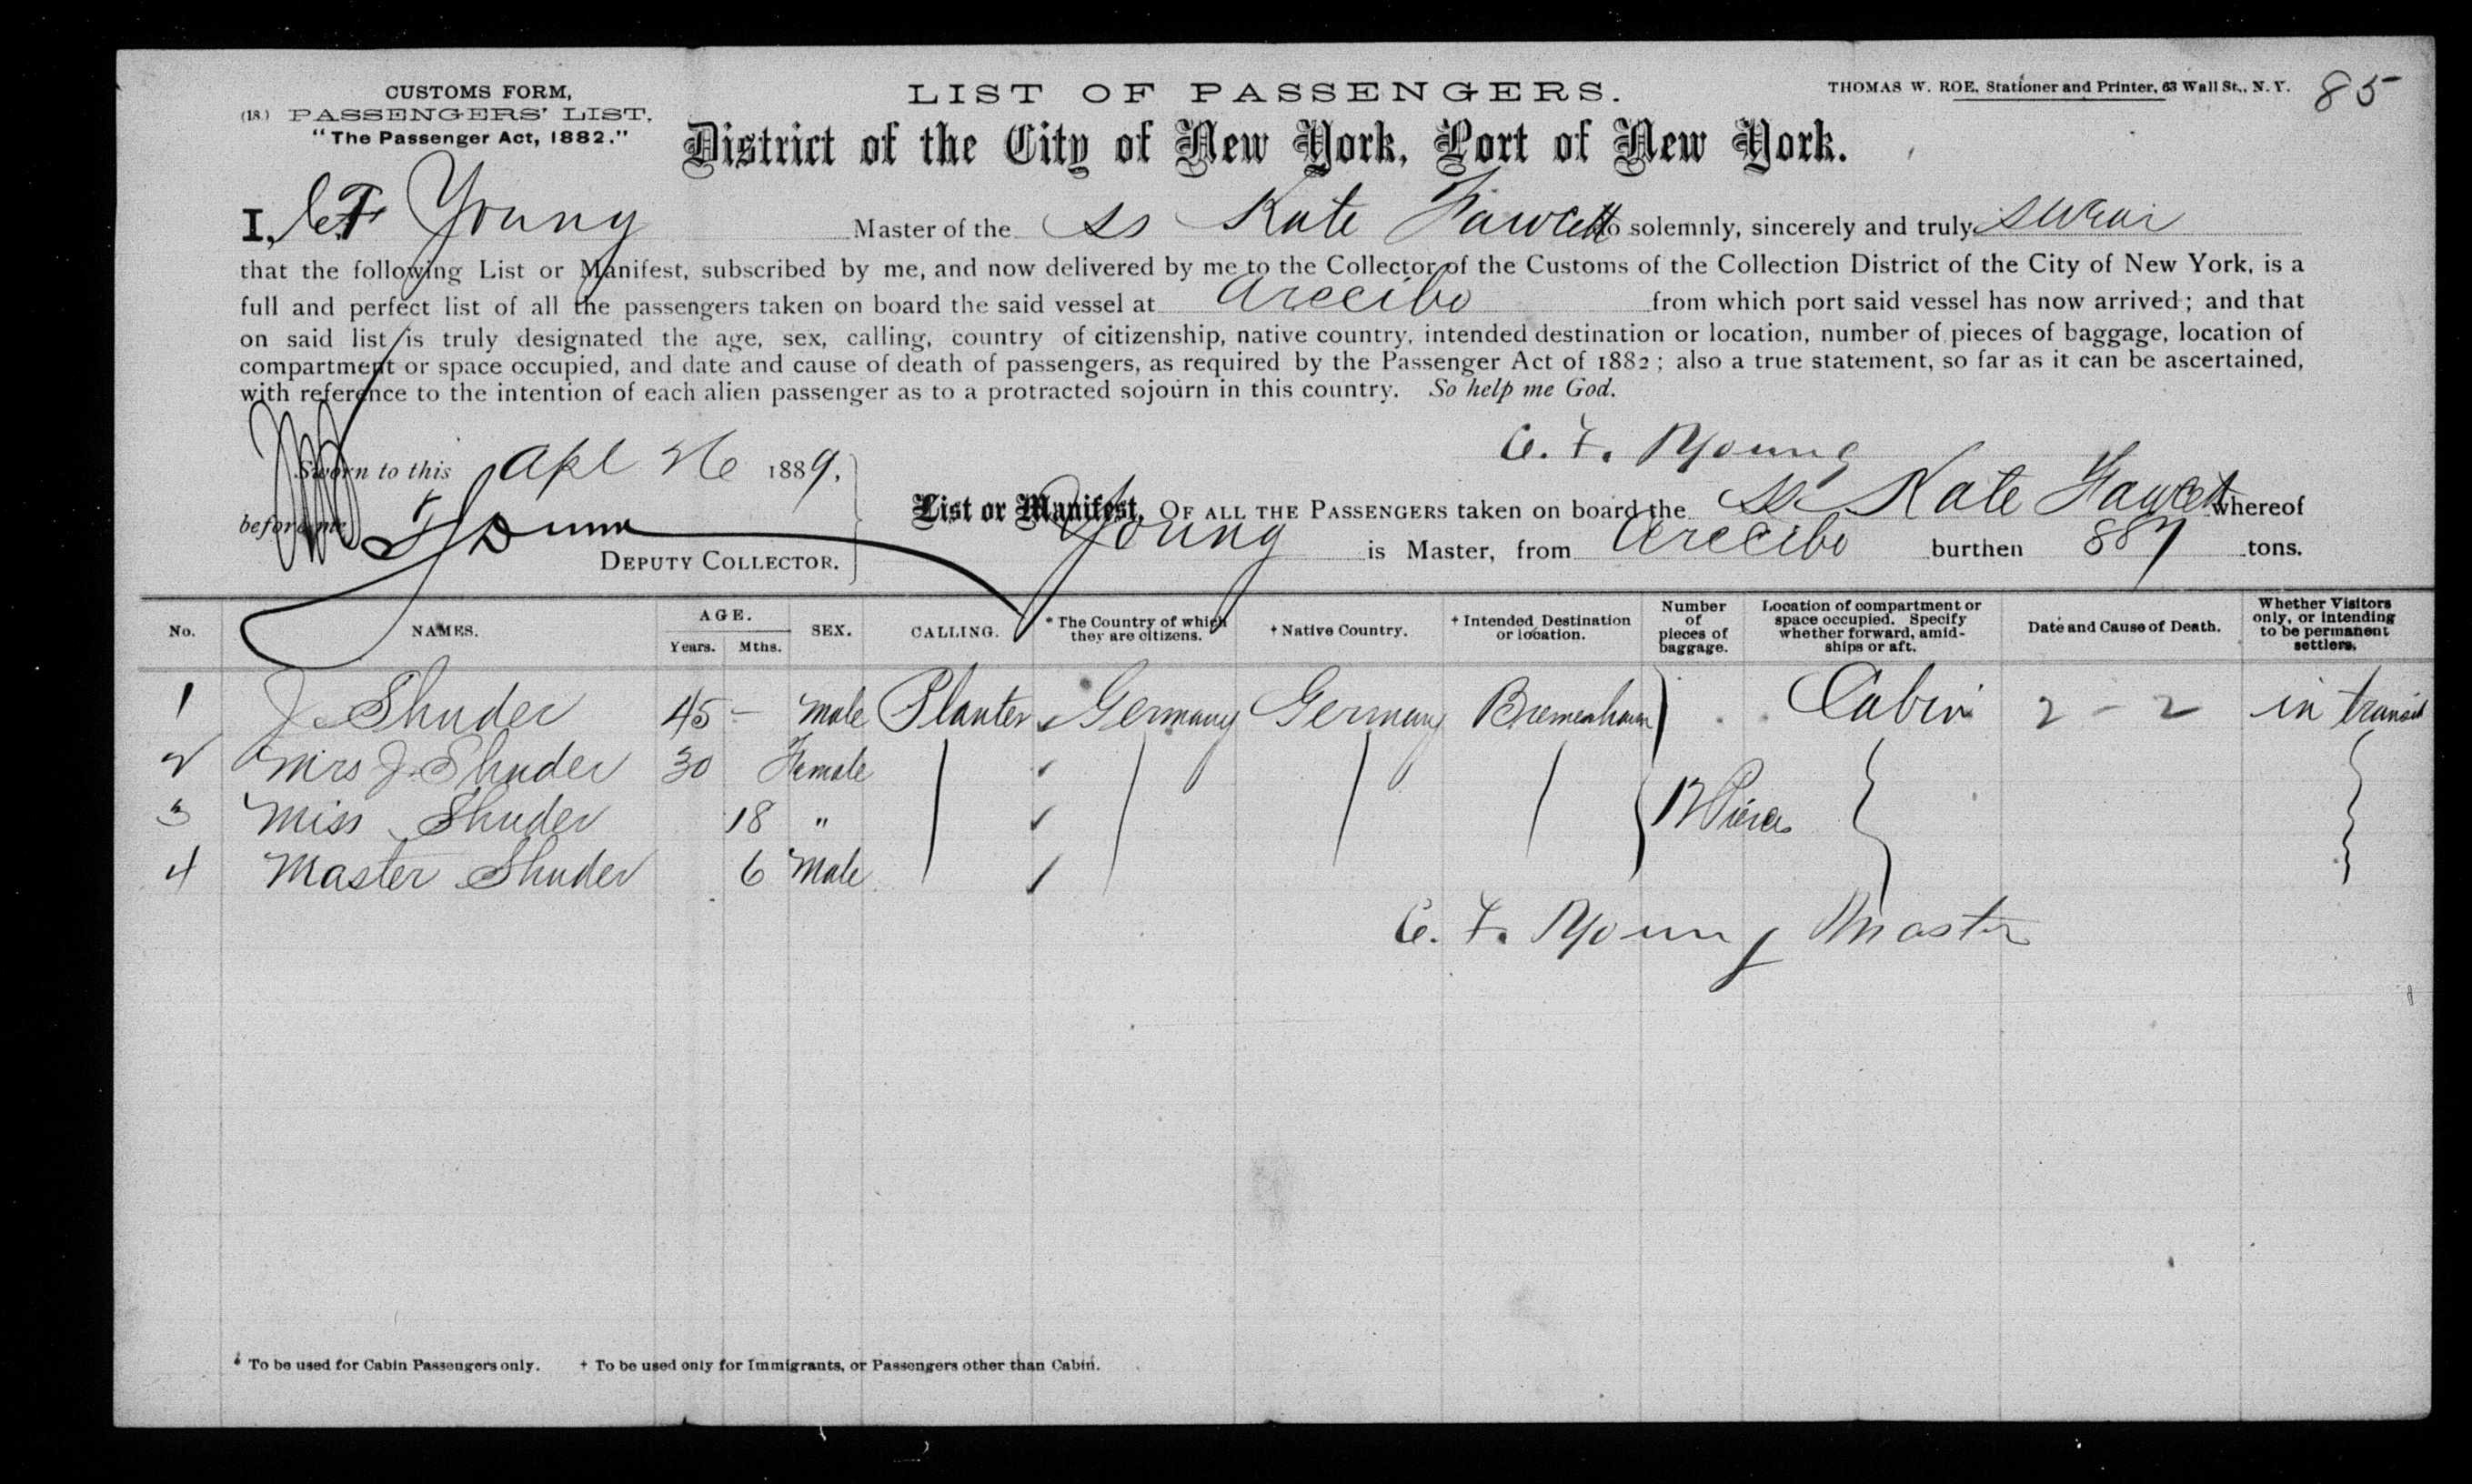 CUSTOMS FORM,
(18.) PASSENGERS' LIST.
"The Passenger Act, 1882."
LIST OF PASSENGERS.
THOMAS W. ROE, Stationer and Printer, 63 Wall St., N. Y.
85
District of the City of New York, Port of New York.
I, C.F. Young Master of the SS Kate Fawcett do solemnly, sincerely and truly swear
that the following List or Manifest, subscribed by me, and now delivered by me to the Collector of the Customs of the Collection District of the City of New York, is a
full and perfect list of all the passengers taken on board the said vessel at Arecibo from which port said vessel has now arrived; and that
on said list is truly designated the age, sex, calling, country of citizenship, native country, intended destination or location, number of pieces of baggage, location of
compartment or space occupied, and date and cause of death of passengers, as required by the Passenger Act of 1882; also a true statement, so far as it can be ascertained,
with reference to the intention of each alien passenger as to a protracted sojourn in this country. So help me God.
C. F. Young
Sworn to this Apl 26 1889,
before me Dunn
DEPUTY COLLECTOR.
List or Manifest, OF ALL THE PASSENGERS taken on board the SS Kate Fawcett whereof
Young is Master, from Arecibo burthen 887 tons.
No. NAMES. AGE. Years. Mths. SEX. CALLING. * The Country of which they are citizens. † Native Country. † Intended Destination or location. Number of pieces of baggage. Location of compartment or space occupied. Specify whether forward, amid-ships or aft. Date and Cause of Death. Whether Visitors only, or intending to be permanent settlers.
1 J. Shuder 45 - Male Planter Germany Germany Bremenhaven Cabin 2 - 2 in transit
2 Mrs J. Shuder 30 Female
3 Miss Shuder 18 " 12 Pieces
4 Master Shuder 6 Male
C. F. Young Master
* To be used for Cabin Passengers only. † To be used only for Immigrants, or Passengers other than Cabin.